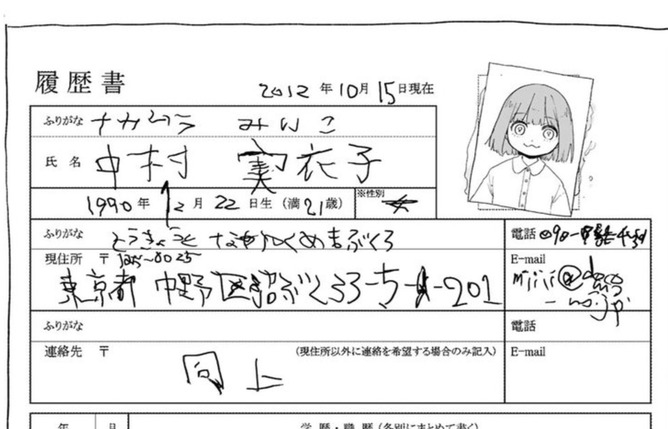 履歴書
2012 年 10 月 15 日現在
ふりがな ナカムラ みいこ
氏名 中村 実衣子
1990 年 12 月 22 日生 (満 21 歳) ※性別
ふりがな とうきょうと なかのくぬまぶくろ
電話
現住所 〒 165-0025
E-mail
東京都 中野区沼ぶくろ3-5-
-201
ふりがな
電話
連絡先 〒 (現住所以外に連絡を希望する場合のみ記入)
E-mail
同上
年 月 学歴・職歴 (各別にまとめて書く)